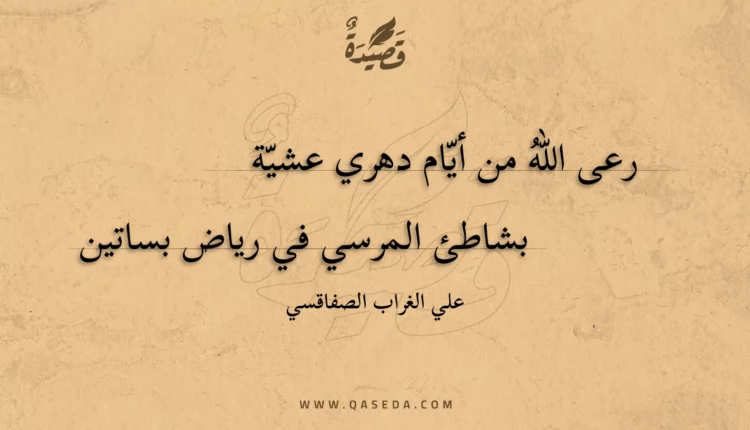 قَصِيْدَةٌ
رعى اللهُ من أيّام دهري عشيّة
بشاطئ المرسي في رياض بساتين
علي الغراب الصفاقسي
WWW.QASEDA.COM